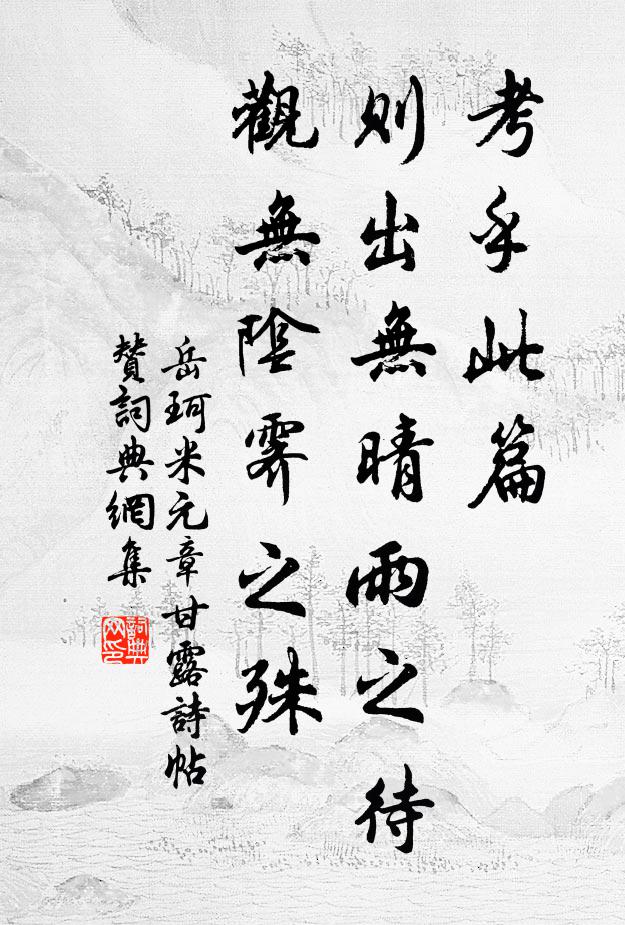 考乎此篇
則出無晴雨之待
觀無陰霽之殊
岳珂米元章甘露詩帖
贊詞典網集
詞典
网印